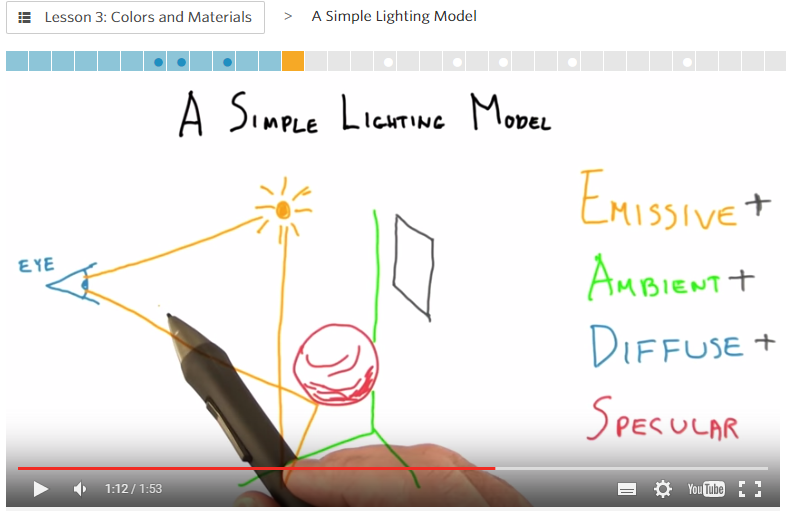 Lesson 3: Colors and Materials > A Simple Lighting Model
A SIMPLE LIGHTING MODEL
EYE
EMISSIVE +
AMBIENT +
DIFFUSE +
SPECULAR
1:12 / 1:53
YouTube